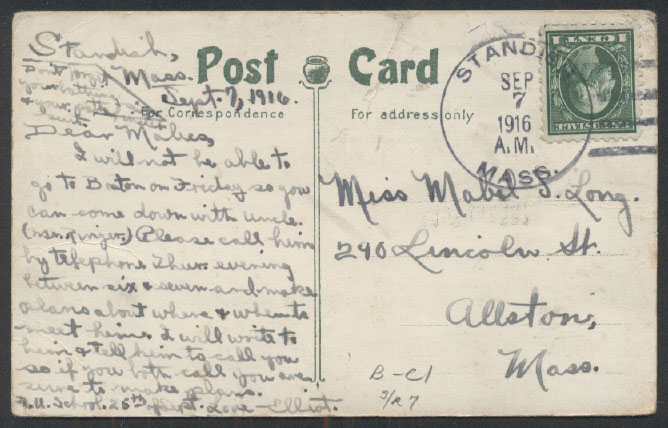 Standish,
Mass.
Sept. 7, 1916.
Don't forget
your bathing
suit
Post Card
For Correspondence
For address only
Dear Mabes,
I will not be able to
go to Boston on Friday so you
can come down with uncle.
Please call him
by telephone Thur. evening
between six & seven and make
plans about where & when to
meet him. I will write to
him & tell him to call you
so if you both call you are
sure to make plans.
School. 25th of Sept. Love - Elliot.
STANDISH
SEP
7
1916
A.M.
MASS.
1 CENT 1
U.S. POSTAGE
Miss Mabel J. Long.
290 Lincoln St.
Allston,
Mass.
B-C1
3/27